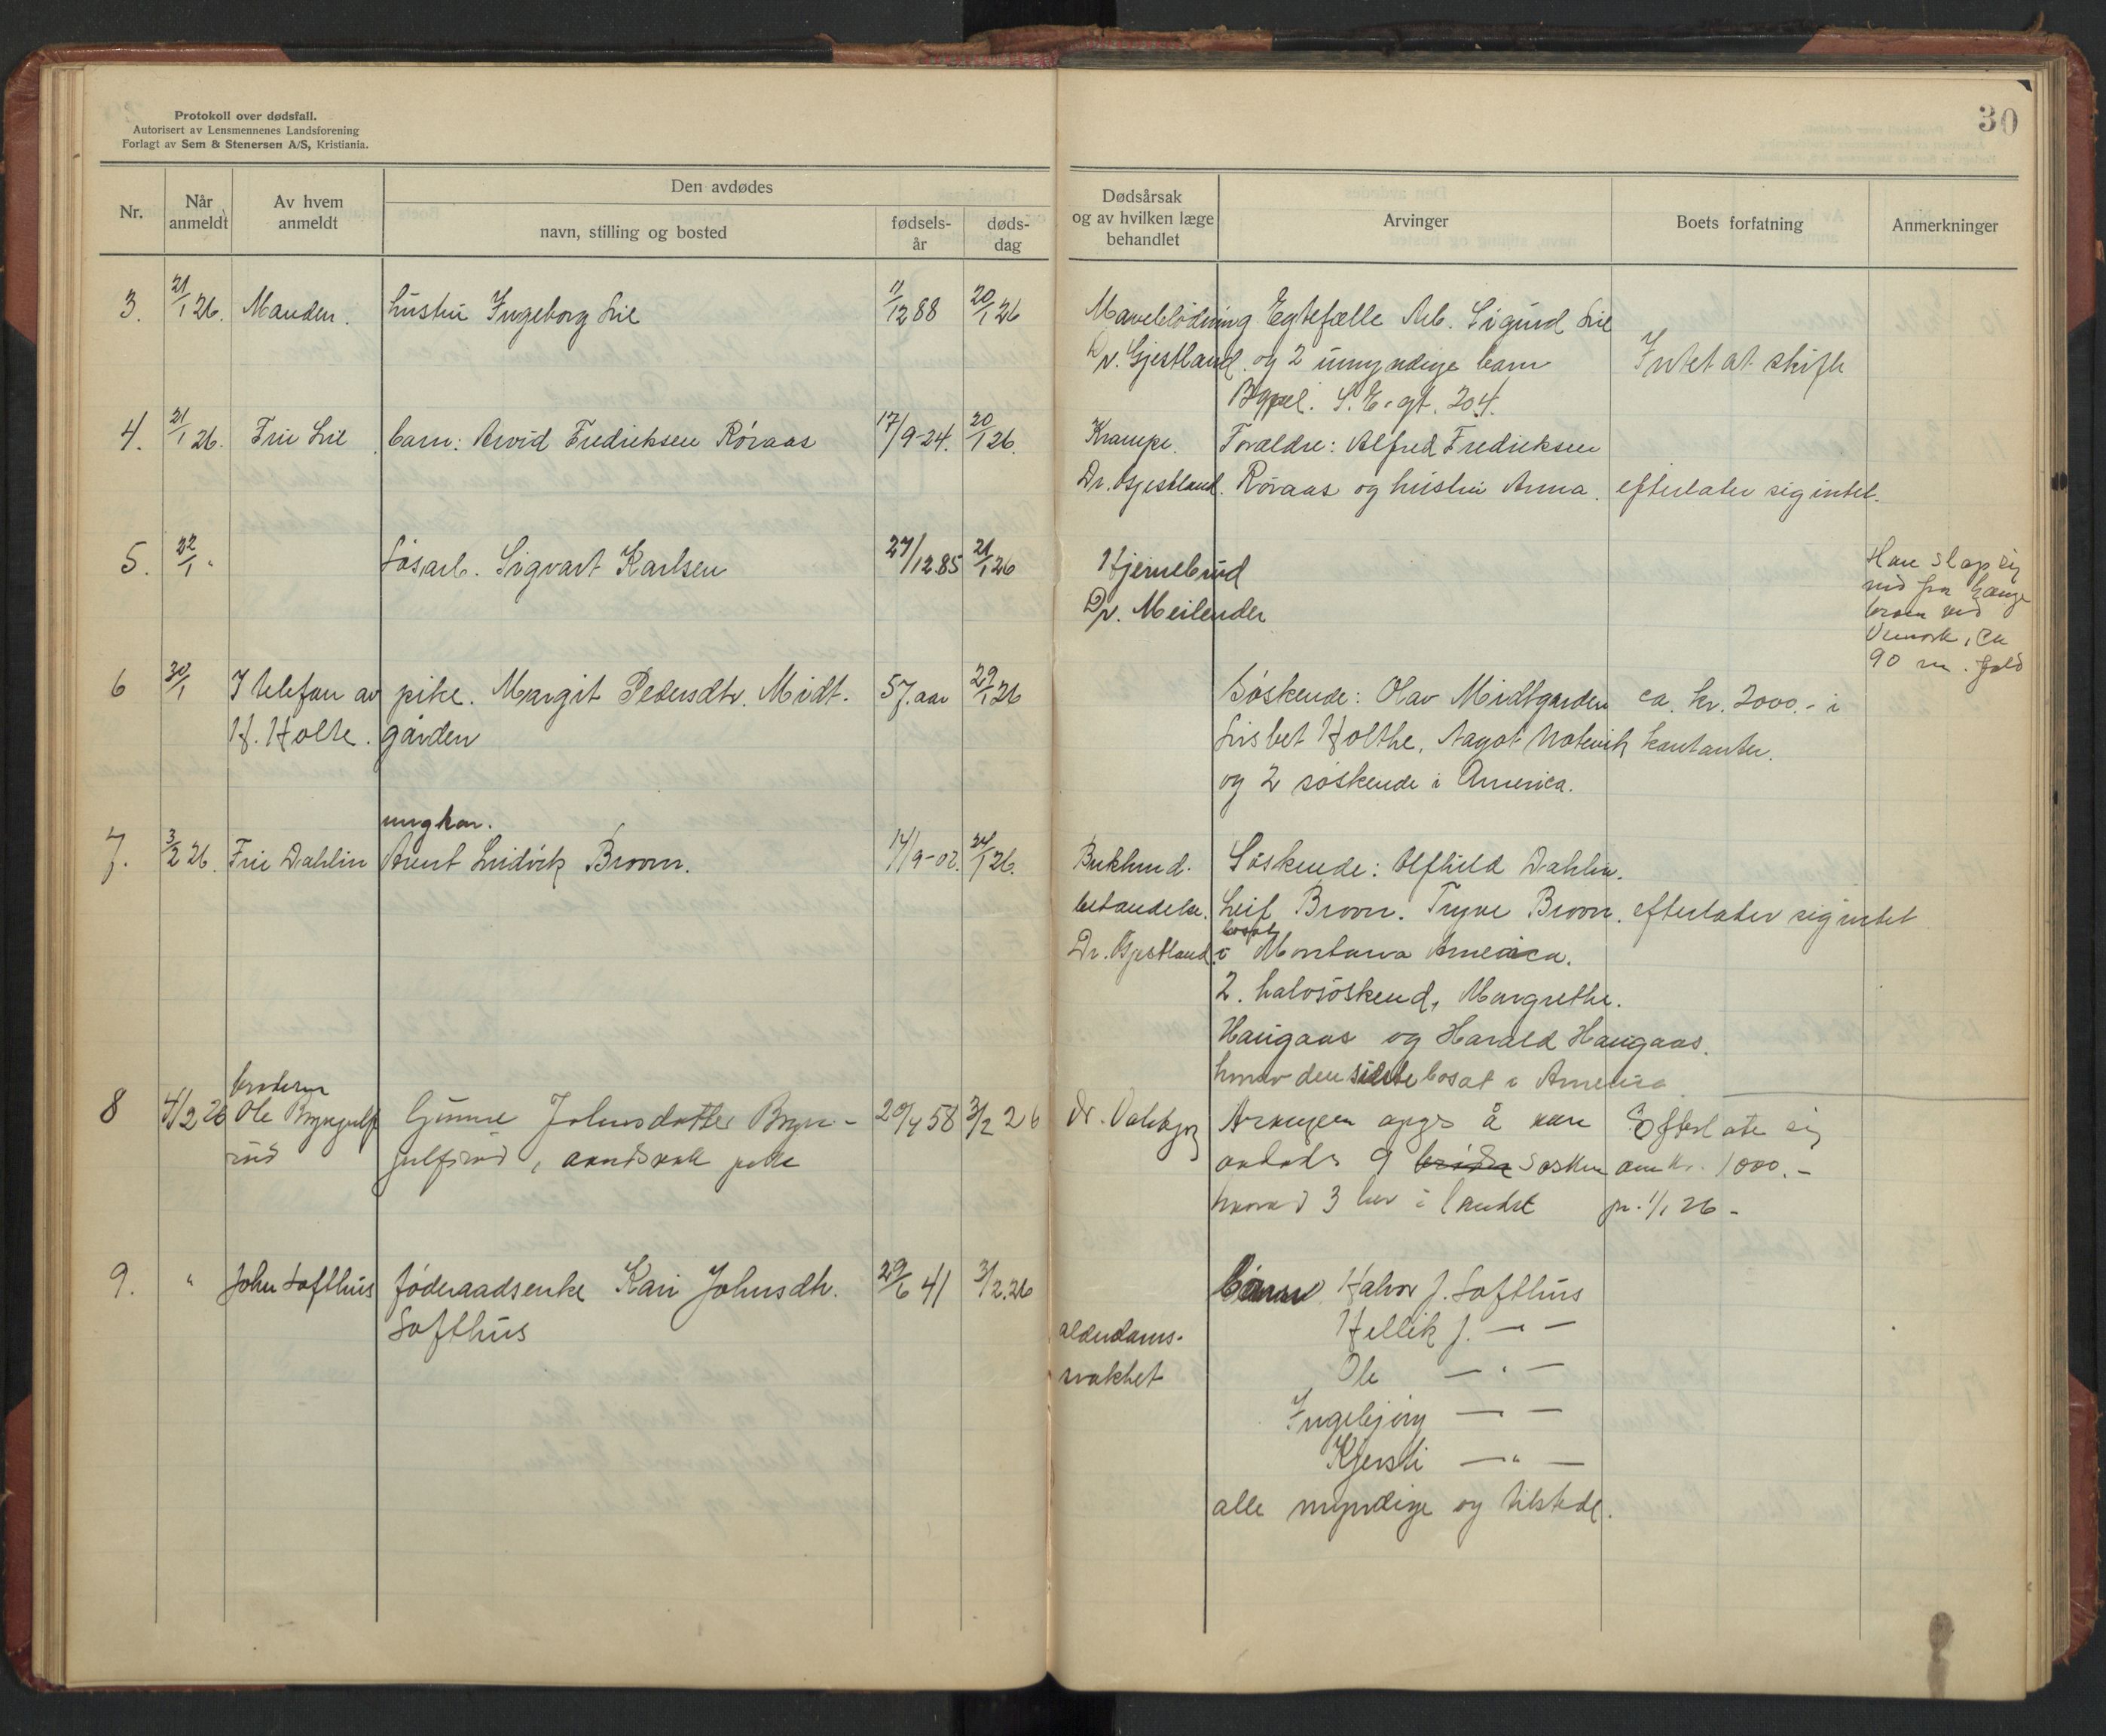 Protokoll over dødsfall.
Autorisert av Lensmennenes Landsforening
Forlagt av Sem & Stenersen A/S, Kristiania.
30
Nr.
Når anmeldt
Av hvem anmeldt
Den avdødes
navn, stilling og bosted
fødsels-år
døds-dag
Dødsårsak og av hvilken læge behandlet
Arvinger
Boets forfatning
Anmerkninger
3. 21/1 26. Manden. hustru Ingeborg Lie 11/12 88 20/1 26
Maveblödning Egtefælle Arb. Sigurd Lie
Dr. Gjestland. og 2 umyndige barn Intet at skifte
S. E. gt. 204.
4. 21/1 26. Fru Lie barn: Arvid Fredriksen Röraas 17/9-24. 20/1 26.
Krampe. Forældre: Alfred Fredriksen
Dr. Gjestland. Röraas og hustru Anna. efterlater sig intet.
5. 22/1 " Løsarb. Sigvart Karlsen 27/12 85 21/1 26
Hjernebrud
Dr. Meilender
Han slap sig
ned fra hænge
broen ved
Vemork, ca
90 m. fald
6 30/1 I telefon av pike. Margit Pedersdtr. Midt- 57. aar 29/1 26
H. Holte. gården
Söskende: Olav Midtgarden ca. kr. 2000.- i
Lisbet Holthe, Aagot Notevik kontanter.
og 2 söskende i America.
ungkar.
7. 3/2 26. Fru Dahlin Arent Ludvik Broorn. 14/9-02. 24/1 26.
Bukhind. Söskende: Alfhild Dahlin.
betændelse. Leif Broorn. Tryve Broorn. efterlater sig intet
bosat
Dr. Gjestland. i Montana America.
2. halvsöskend, Margrethe.
Haugaas og Harald Haugaas.
hvorav den sidste bosat i America
broderen
8 4/2 26 Ole Bryngulfs Gunne Johnsdotter Bryn- 20/4 58 3/2 26
rud gulfsrud, pike
Dr. Arvingen opgs å være Efterlate sig
avdöde 9 brödre Sösken om kr. 1000.-
hvorav 3 her i landet pr. 1/1 26-
9. " John Lofthus föderaadsenke Kari Johnsdtr. 29/6 41 3/2.26
Lofthus
alderdoms-
svakhet
Barn Halvor J. Lofthus
Hellik J. — " —
Ole — " —
Ingebjörg — " —
Kjersti — " —
alle myndige og tilstede.